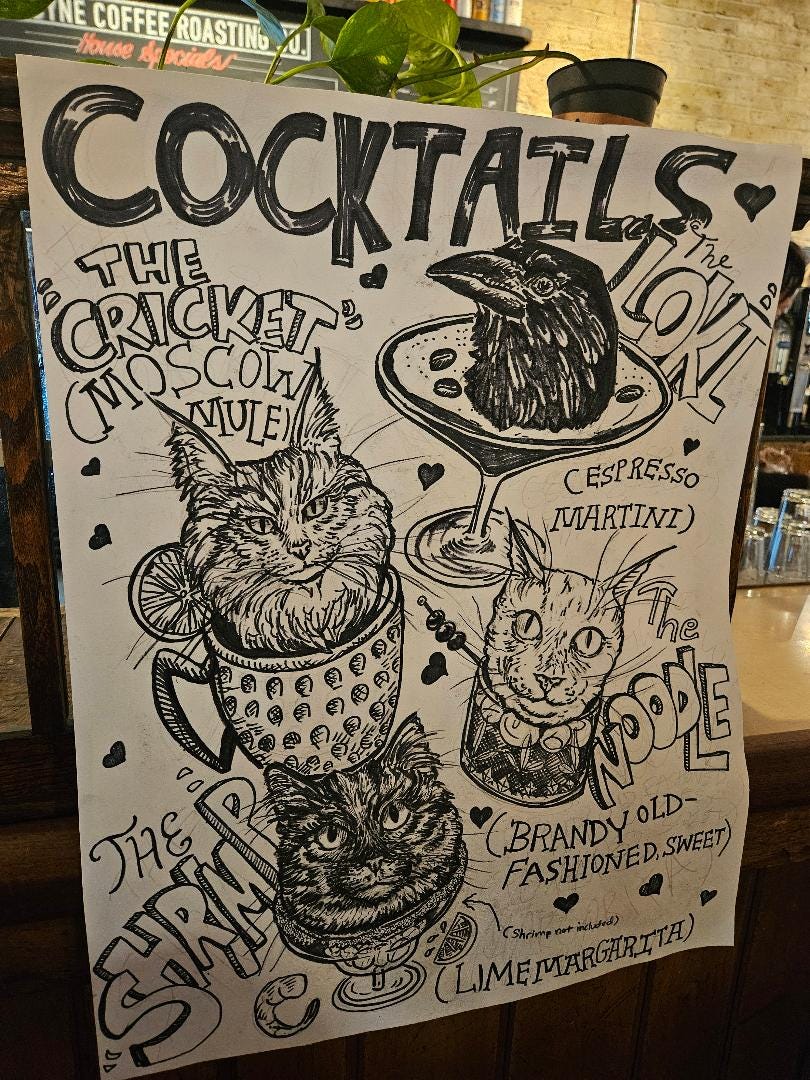 YNE COFFEE ROASTING CO.
House Specials
COCKTAILS
THE
"CRICKET"
(MOSCOW
MULE)
The
LOKI
(ESPRESSO
MARTINI)
The
NOODLE
(BRANDY OLD-
FASHIONED, SWEET)
THE
SHRMP
(Shrimp not included)
(LIME MARGARITA)